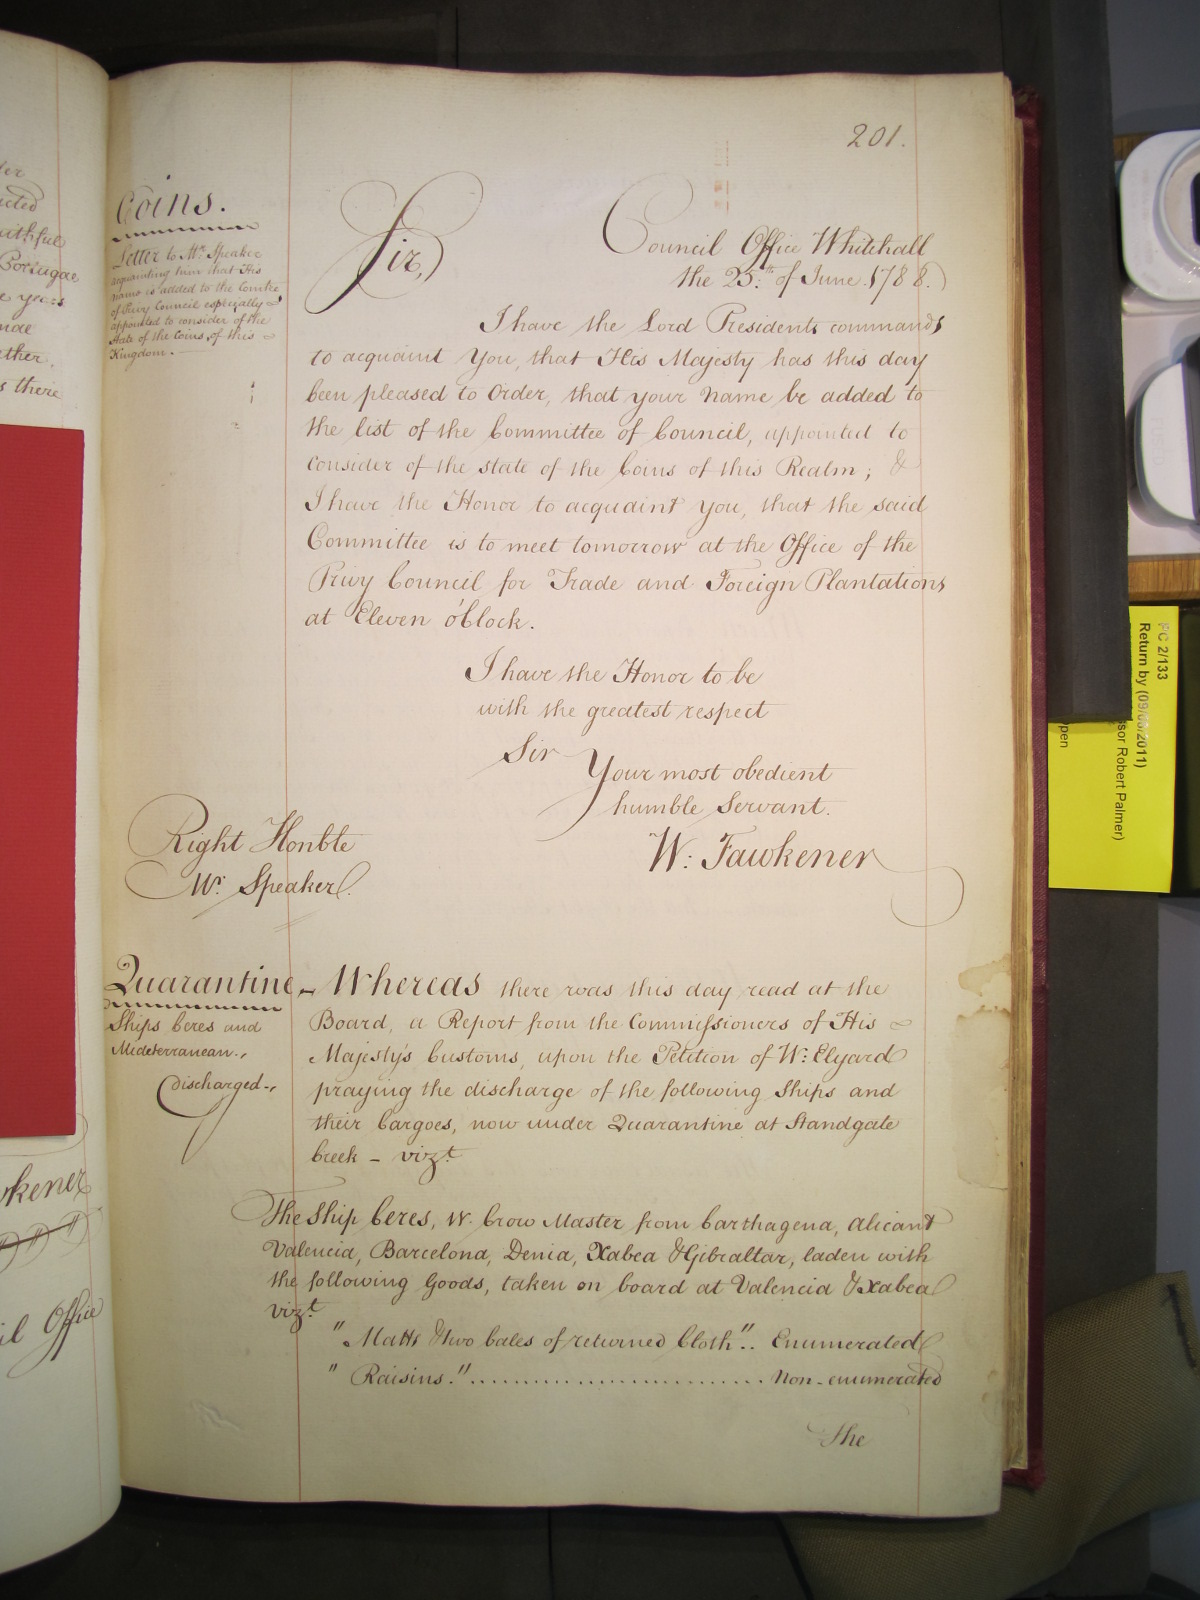 201.
Coins.
Letter to Mr. Speaker
acquainting him that His
name is added to the Comtee
of Privy Council especially
appointed to consider of the
State of the Coins of this
Kingdom.
Sir,
Council Office Whitehall
the 25th of June 1788.
I have the Lord Presidents commands
to acquaint You, that His Majesty has this day
been pleased to Order, that your Name be added to
the list of the Committee of Council, appointed to
consider of the state of the Coins of this Realm; &
I have the Honor to acquaint You, that the said
Committee is to meet tomorrow at the Office of the
Privy Council for Trade and Foreign Plantations
at Eleven o'Clock.
I have the Honor to be
with the greatest respect
Sir
Your most obedient
humble Servant.
W: Fawkener
Right Honble
Mr Speaker.
Quarantine
Ships Ceres and
Mideterranean.,
discharged.,
Whereas there was this day read at the
Board, a Report from the Commissioners of His
Majesty's Customs, upon the Petition of W: Elyard
praying the discharge of the following Ships and
their Cargoes, now under Quarantine at Standgate
Creek - vizt
The Ship Ceres, W. Crow Master from Carthagena, Alicant
Valencia, Barcelona, Denia, Xabea & Gibraltar, laden with
the following Goods, taken on board at Valencia & Xabea
vizt
"Matts & two bales of returned Cloth".. Enumerated
"Raisins."............................ Non-enumerated
The
der
ucted
uthful
Portugae
e years
mae
ther
s there
wkener
il Office
PC 2/133
Return by (09/05/2011)
ssor Robert Palmer)
open